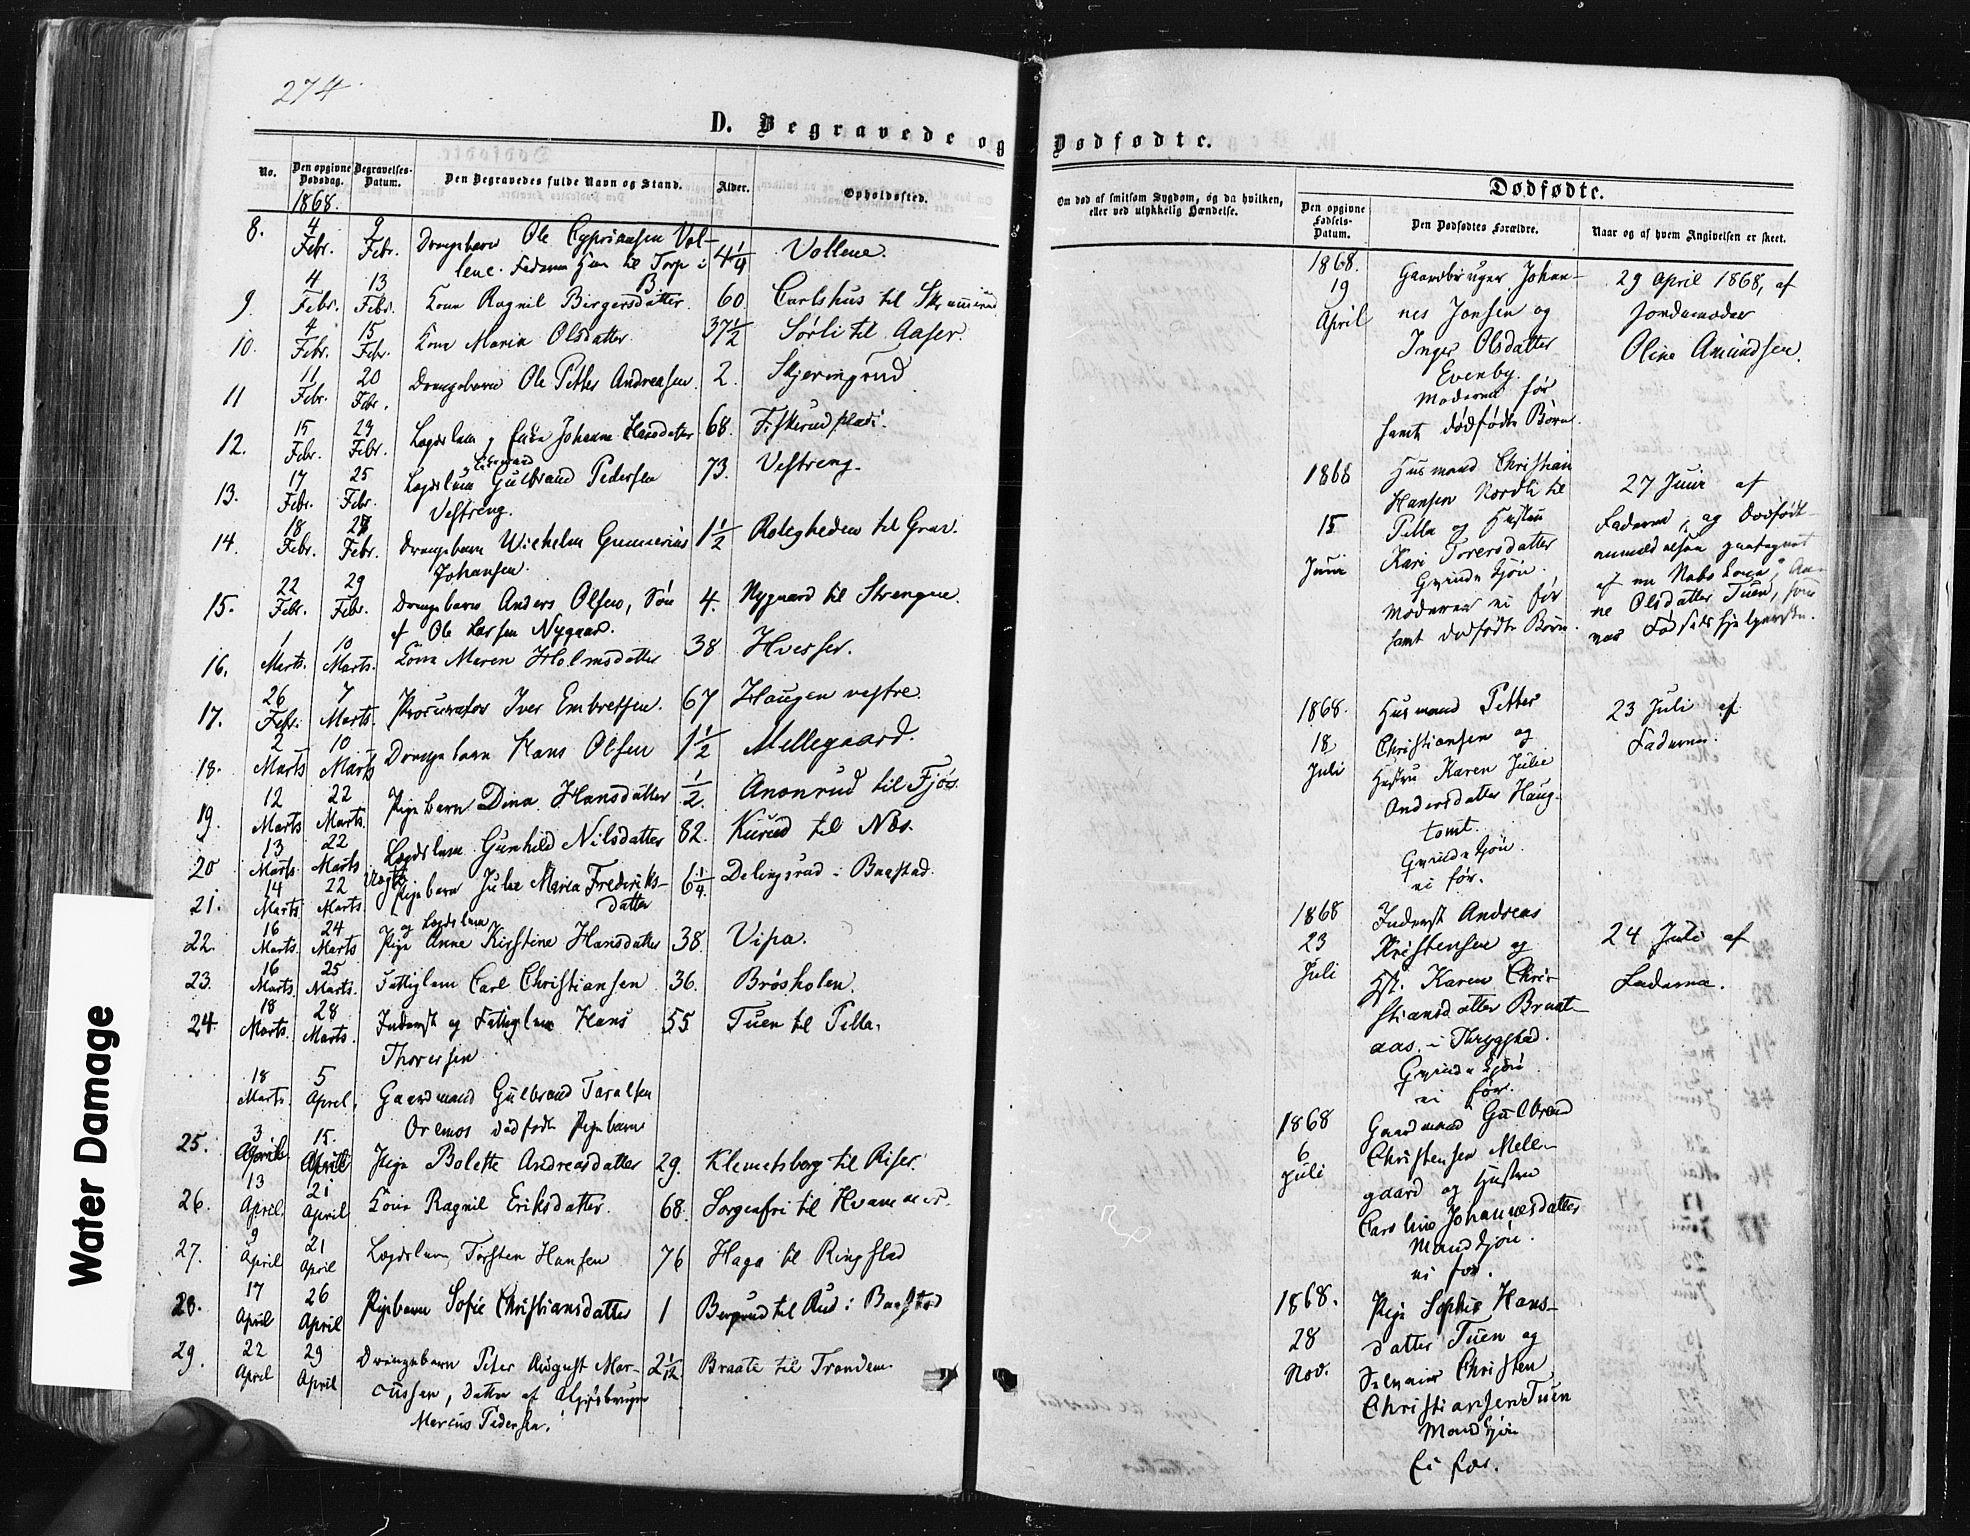 274
D. Begravede og Dødfødte.
No.
Den opgivne Dødsdag.
Begravelses-Datum.
Den Begravedes fulde Navn og Stand.
Alder.
Opholdssted.
1868.
8. 4 Febr. 9 Febr. Drengebarn Ole Cypriansen Vol- 4 1/4 Vollene.
lene. til Torp i
9. 4 Febr. 13 Febr. Kone Ragnil Birgersdatter. 60 Carlshus til
10. 4 Febr. 15 Febr. Kone Maria Olsdatter. 37 1/2 Sørli til Aaser.
11 11 Febr. 20 Febr. Drengebarn Ole Petter Andreasen 2. Skjeringrud
12. 15 Febr. 23 Febr. Lægdslem og Enke Johanne Hansdatter 68. Fiskerud
13. 17 Febr. 25 Febr. Lægdslem Gulbrand Pedersen 73. Vestreng.
Vestreng.
14. 18 Febr. 28 Febr. Drengebarn Wilhelm Gunnerius 1 1/2 Roligheden til Grav.
Johansen.
15. 22 Febr. 29 Febr. Drengebarn Anders Olsen, Søn 4. Nygaard til Strengen.
af Ole Larsen Nygaard.
16. 1 Marts. 10 Marts. Kone Maren Holmsdatter 38 Hvesser.
17. 26 Febr. 7 Marts. Procurator Iver Embretsen. 67 Haugen vestre.
18. 2 Marts 10 Marts Drengebarn Hans Olsen 1 1/2 Mellegaard.
19. 12 Marts 22 Marts. Pigebarn Dina Hansdatter 1/2. Anonrud til Fjøs.
20 13 Marts. 22 Marts Lægdslem Gunhild Nilsdatter 82. Kurud til Næs.
21. 14 Marts. 22 Marts Pigebarn Julie Maria Frederiks- 6 1/4. Delingsrud i Baastad.
datter
og Lægdslem
22. 16 Marts. 24 Marts Pige Anne Kirstine Hansdatter 38. Vipa.
23. 16 Marts. 25 Marts. Fattiglem Carl Christiansen 36. Brøsholen.
24. 18 Marts. 28 Marts. Inderst og Fattiglem Hans 55 Tuen til Pella.
Thoresen
18 Marts. 5 April. Gaardmand Gulbrand Taralsen
Oremos dødfødte Pigebarn
25. 3 April 15. April Pige Bolette Andreasdatter 29. Klemetsborg til Riser.
26. 13 April. 21 April Kone Ragnil Eriksdatter. 68. Sorgenfri til Hvammer.
27. 9 April 21 April Lægdslem Torsten Hansen 76 Haga til Ringstad
28. 17 April 26 April Pigebarn Sofie Christiansdatter 1 Bergerud til Rud i Baastad
29. 22 April 29 April Drengebarn Peter August Mar- 2 1/12. Braate til Trondem.
cussen, Datter af
Marcus Pedersen.
Om død af smitsom Sygdom, og da hvilken, eller ved ulykkelig Hændelse.
Dødfødte.
Den opgivne Fødsels-Datum.
Den Dødfødtes Forældre.
Naar og af hvem Angivelsen er skeet.
1868. Gaardbruger Johan- 29 April 1868, af
19 April nes Jonsen og Jordemoder
Inger Olsdatter Oline Amundsen.
Evenby.
Moderen før
havt dødfødte Børn.
1868 Husmand Christian 27 Juni af
Hansen Nordli til Faderen, og Dødfødt-
15 Juni Pella og Hustru
Kari Torersdatter af en Nabokone,
Qvindekjøn. Olsdatter Tuen, som
Moderen ei før var Fødselshjelperske.
havt dødfødte Børn.
1868. Husmand Petter 23 Juli af
18 Juli Christiansen og Faderen.
Hustru Karen Julie
Andersdatter Haug-
tomt.
Qvindekjøn.
ei før.
1868 Inderst Andreas 24 Juli af
23 Juli Kristensen og Faderen.
Hst. Karen Chri-
stiansdatter Braat-
aas i Thrygstad.
Qvindekjøn
ei før.
1868 Gaardmand Gulbrand
6 Juli Christensen Melle-
gaard og Hustru
Caroline Johannesdatter
Mandkjøn.
ei før.
1868. Pige Sophie Hans-
28 Nov. datter Tuen og
Christen
Christiansen Tuen
Mandkjøn
Ei før.
Water Damage